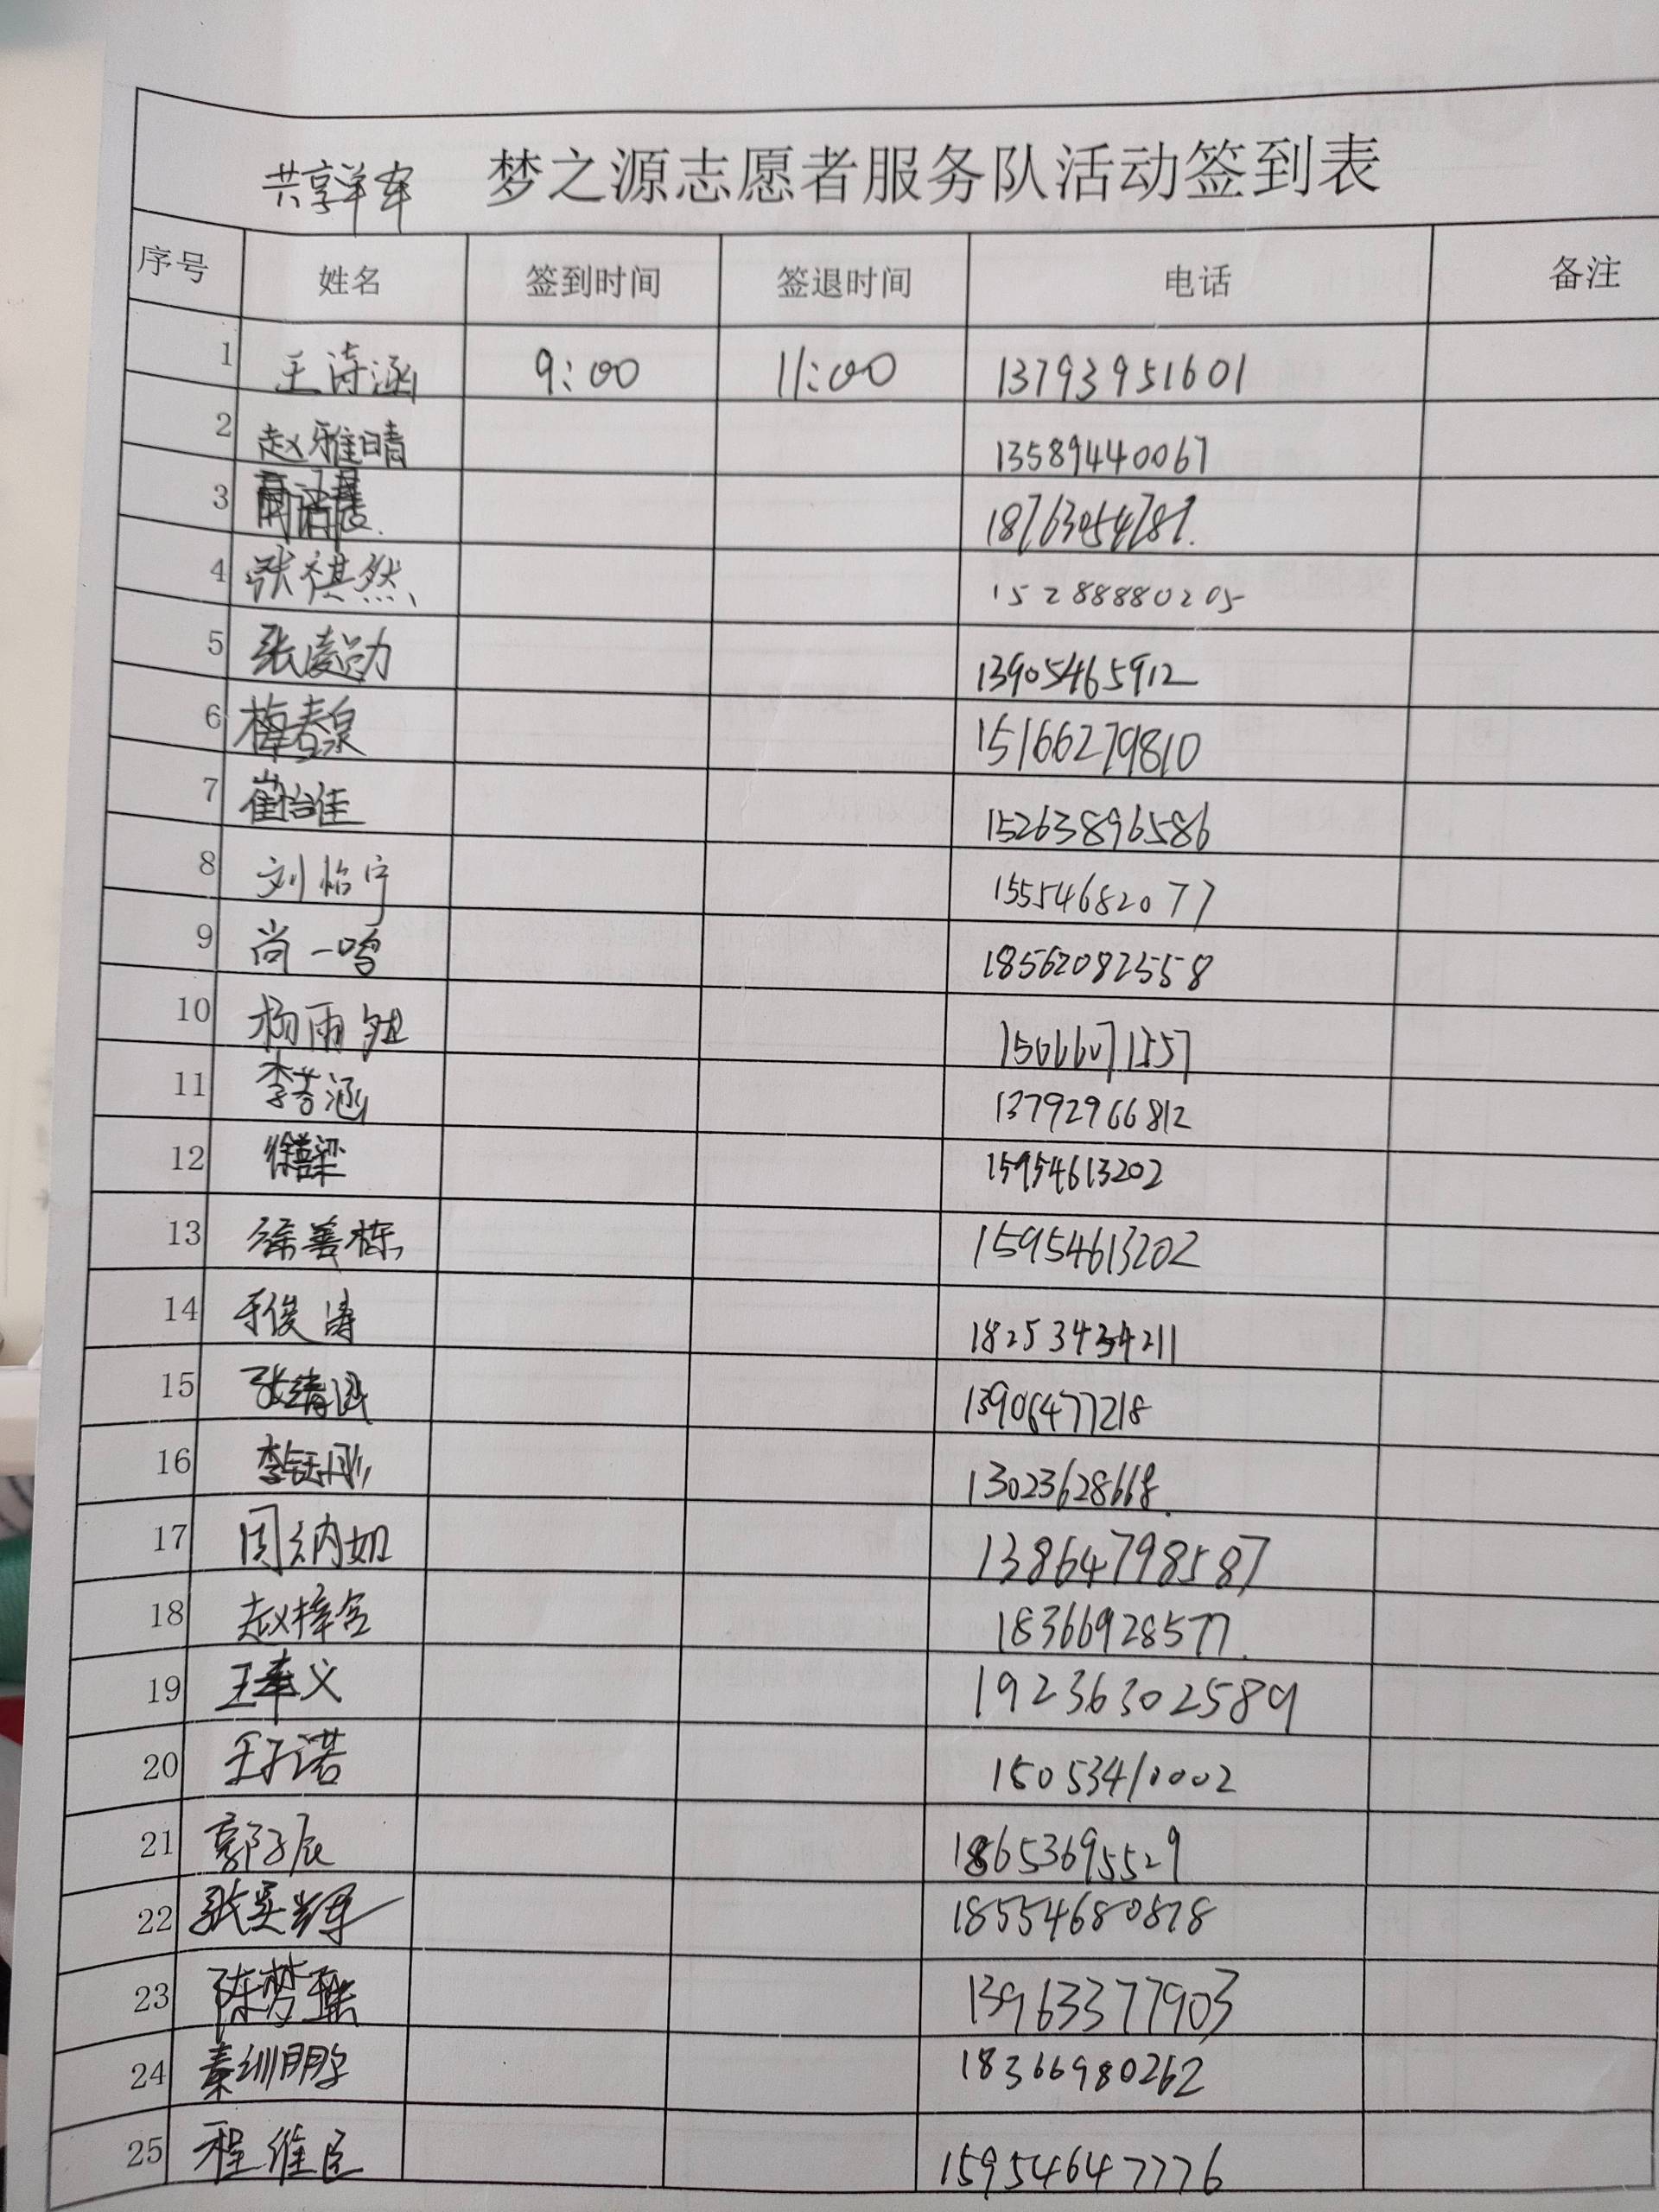 共享单车 梦之源志愿者服务队活动签到表
序号 姓名 签到时间 签退时间 电话 备注
1 王诗涵 9:00 11:00 13793951601
2 赵雅晴 13589440067
3 18763054787.
4 张祺然 15288880205
5 张凌劭 13905465912
6 梅春泉 15166279810
7 崔怡佳 15263896586
8 刘怡宁 15554682077
9 尚一鸣 18562082558
10 杨雨 15066071557
11 李芳涵 13792966812
12 徐善梁 15954613202
13 徐善栋 15954613202
14 于俊涛 18253434211
15 张靖 13906477218
16 李钰彤 13023628668.
17 周纳如 13864798587
18 赵梓含 18366928577.
19 王奉义 19236302589
20 王子诺 15053410002
21 郭子辰 18653695529
22 张奕辉 18554680878
23 陈梦 13963377903
24 秦训鹏 18366980262
25 程维臣 15954647776